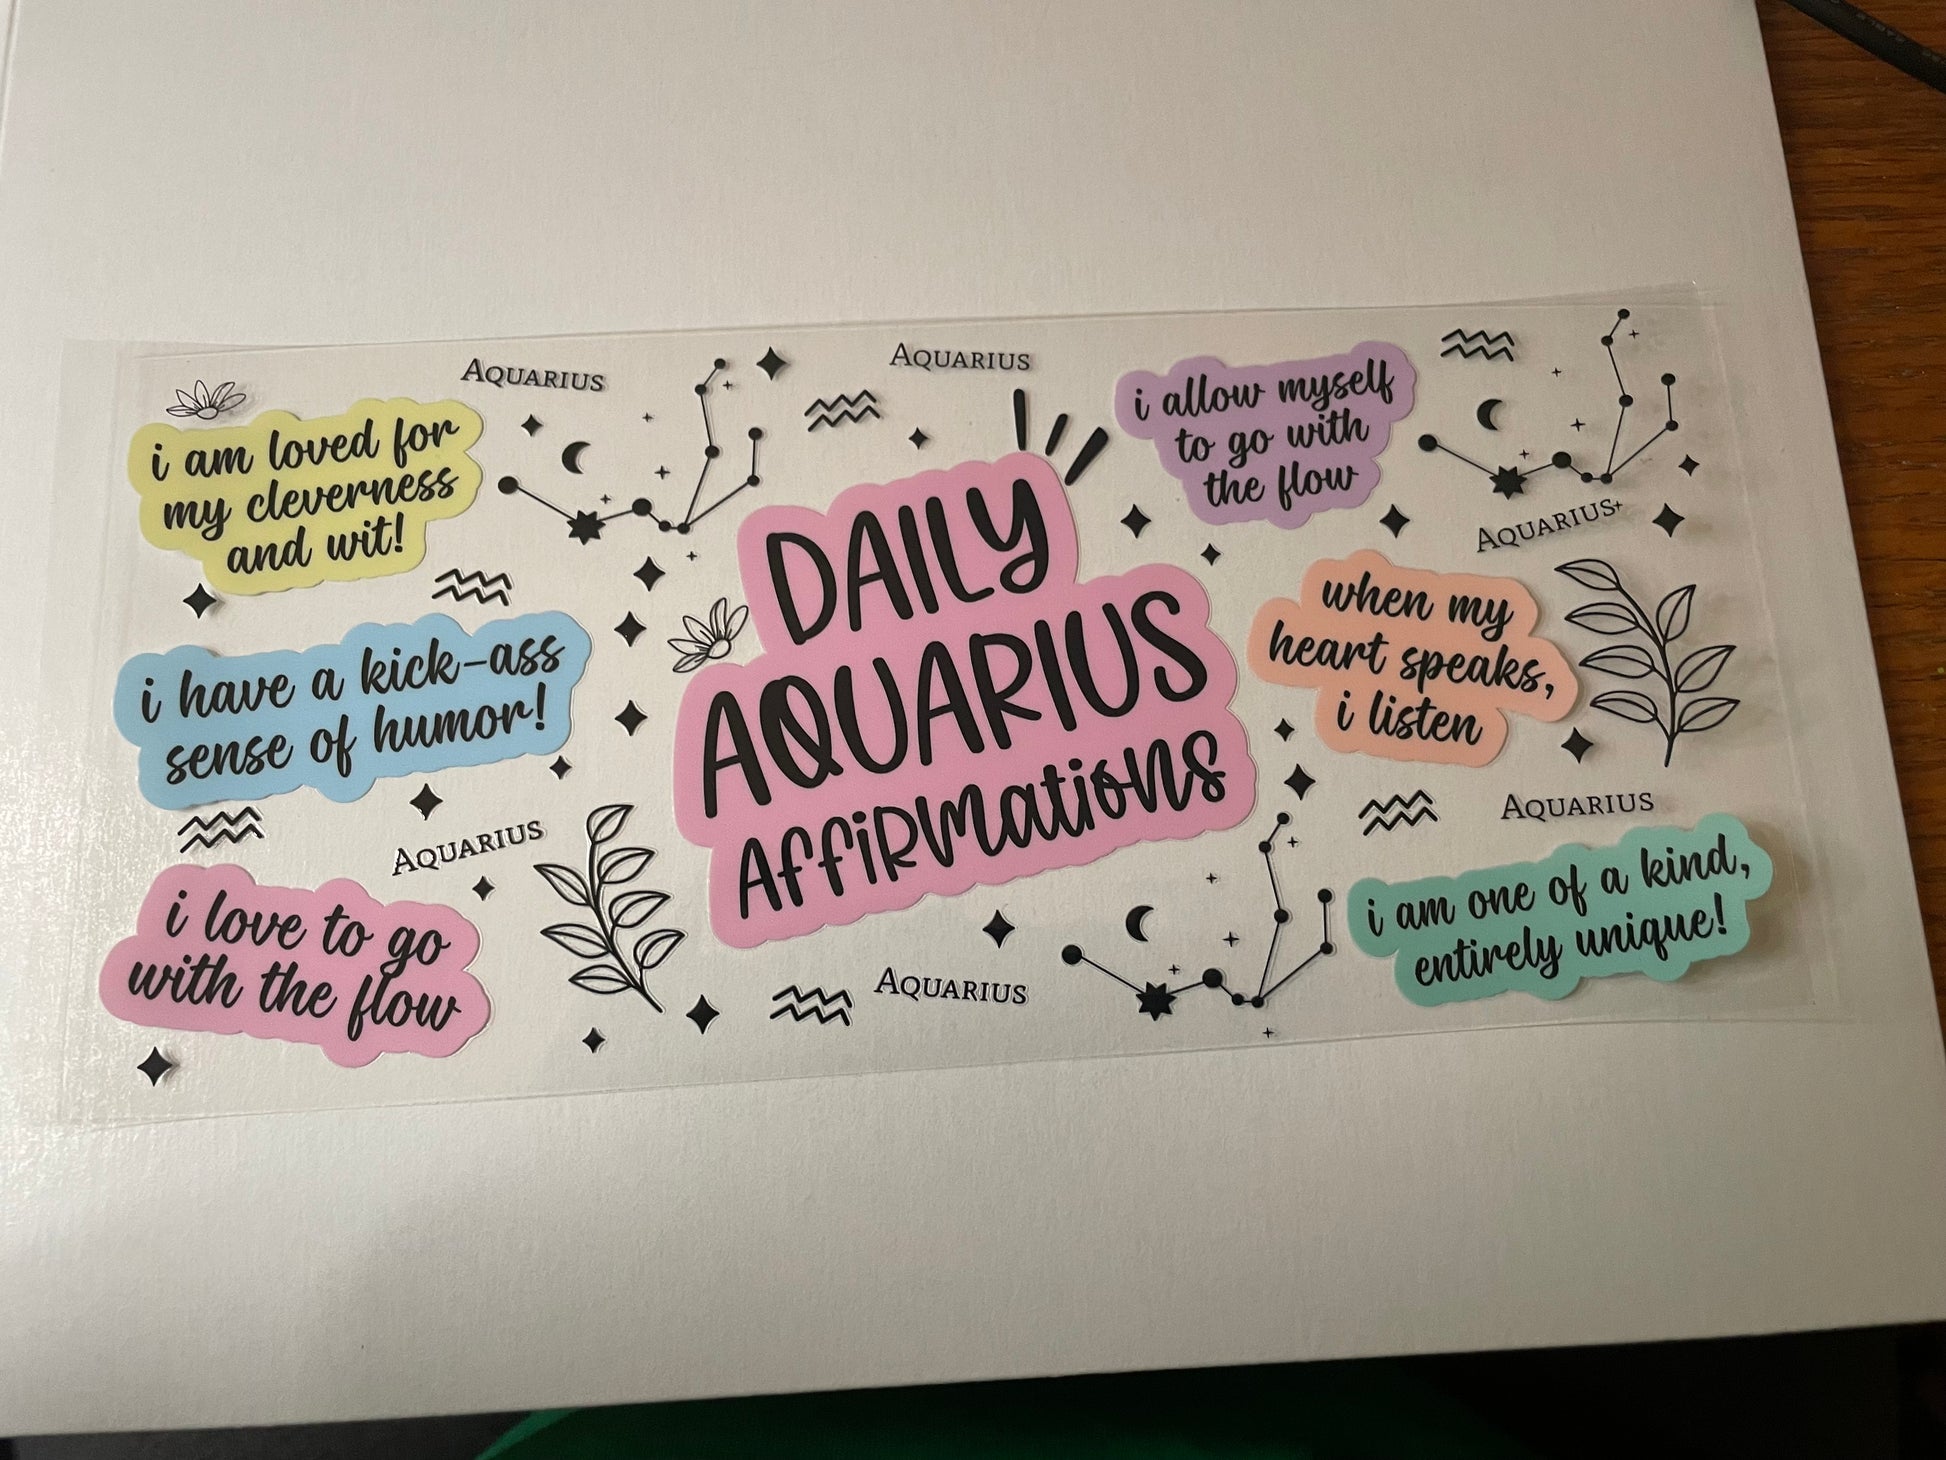 Aquarius
Aquarius
i am loved for
my cleverness
and wit!
i allow myself
to go with
the flow
Aquarius
DAILY
AQUARIUS
AFFiRMatioNs
i have a kick-ass
sense of humor!
when my
heart speaks,
i listen
Aquarius
Aquarius
i love to go
with the flow
Aquarius
i am one of a kind,
entirely unique!